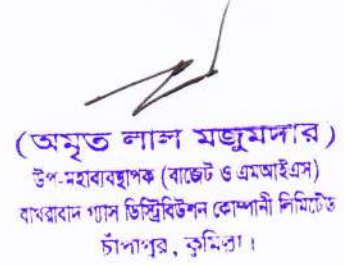 (অমৃত লাল মজুমদার)
উপ-মহাব্যবস্থাপক (বাজেট ও এমআইএস)
বাখরাবাদ গ্যাস ডিস্ট্রিবিউশন কোম্পানী লিমিটেড
চাঁপাপুর, কুমিল্লা।